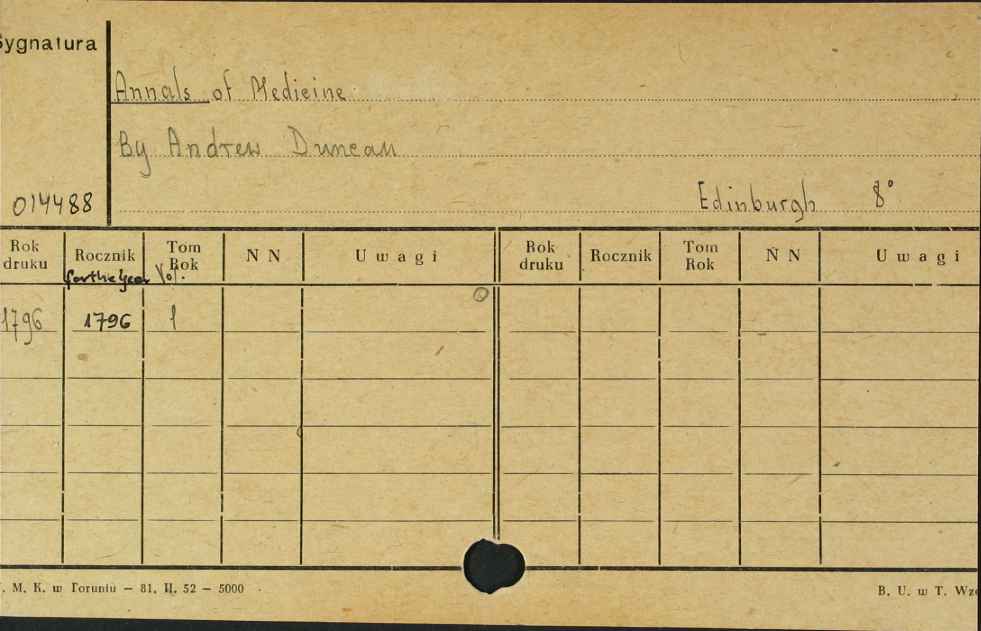 Sygnatura
Annals of Medicine
By Andrew Duncan
014488
Edinburgh 8°
Rok druku Rocznik Tom Rok N N Uwagi Rok druku Rocznik Tom Rok N N Uwagi
for the Year Vol.
1796 1796 1
M. K. w Toruniu — 81. II. 52 — 5000
B. U. w T.